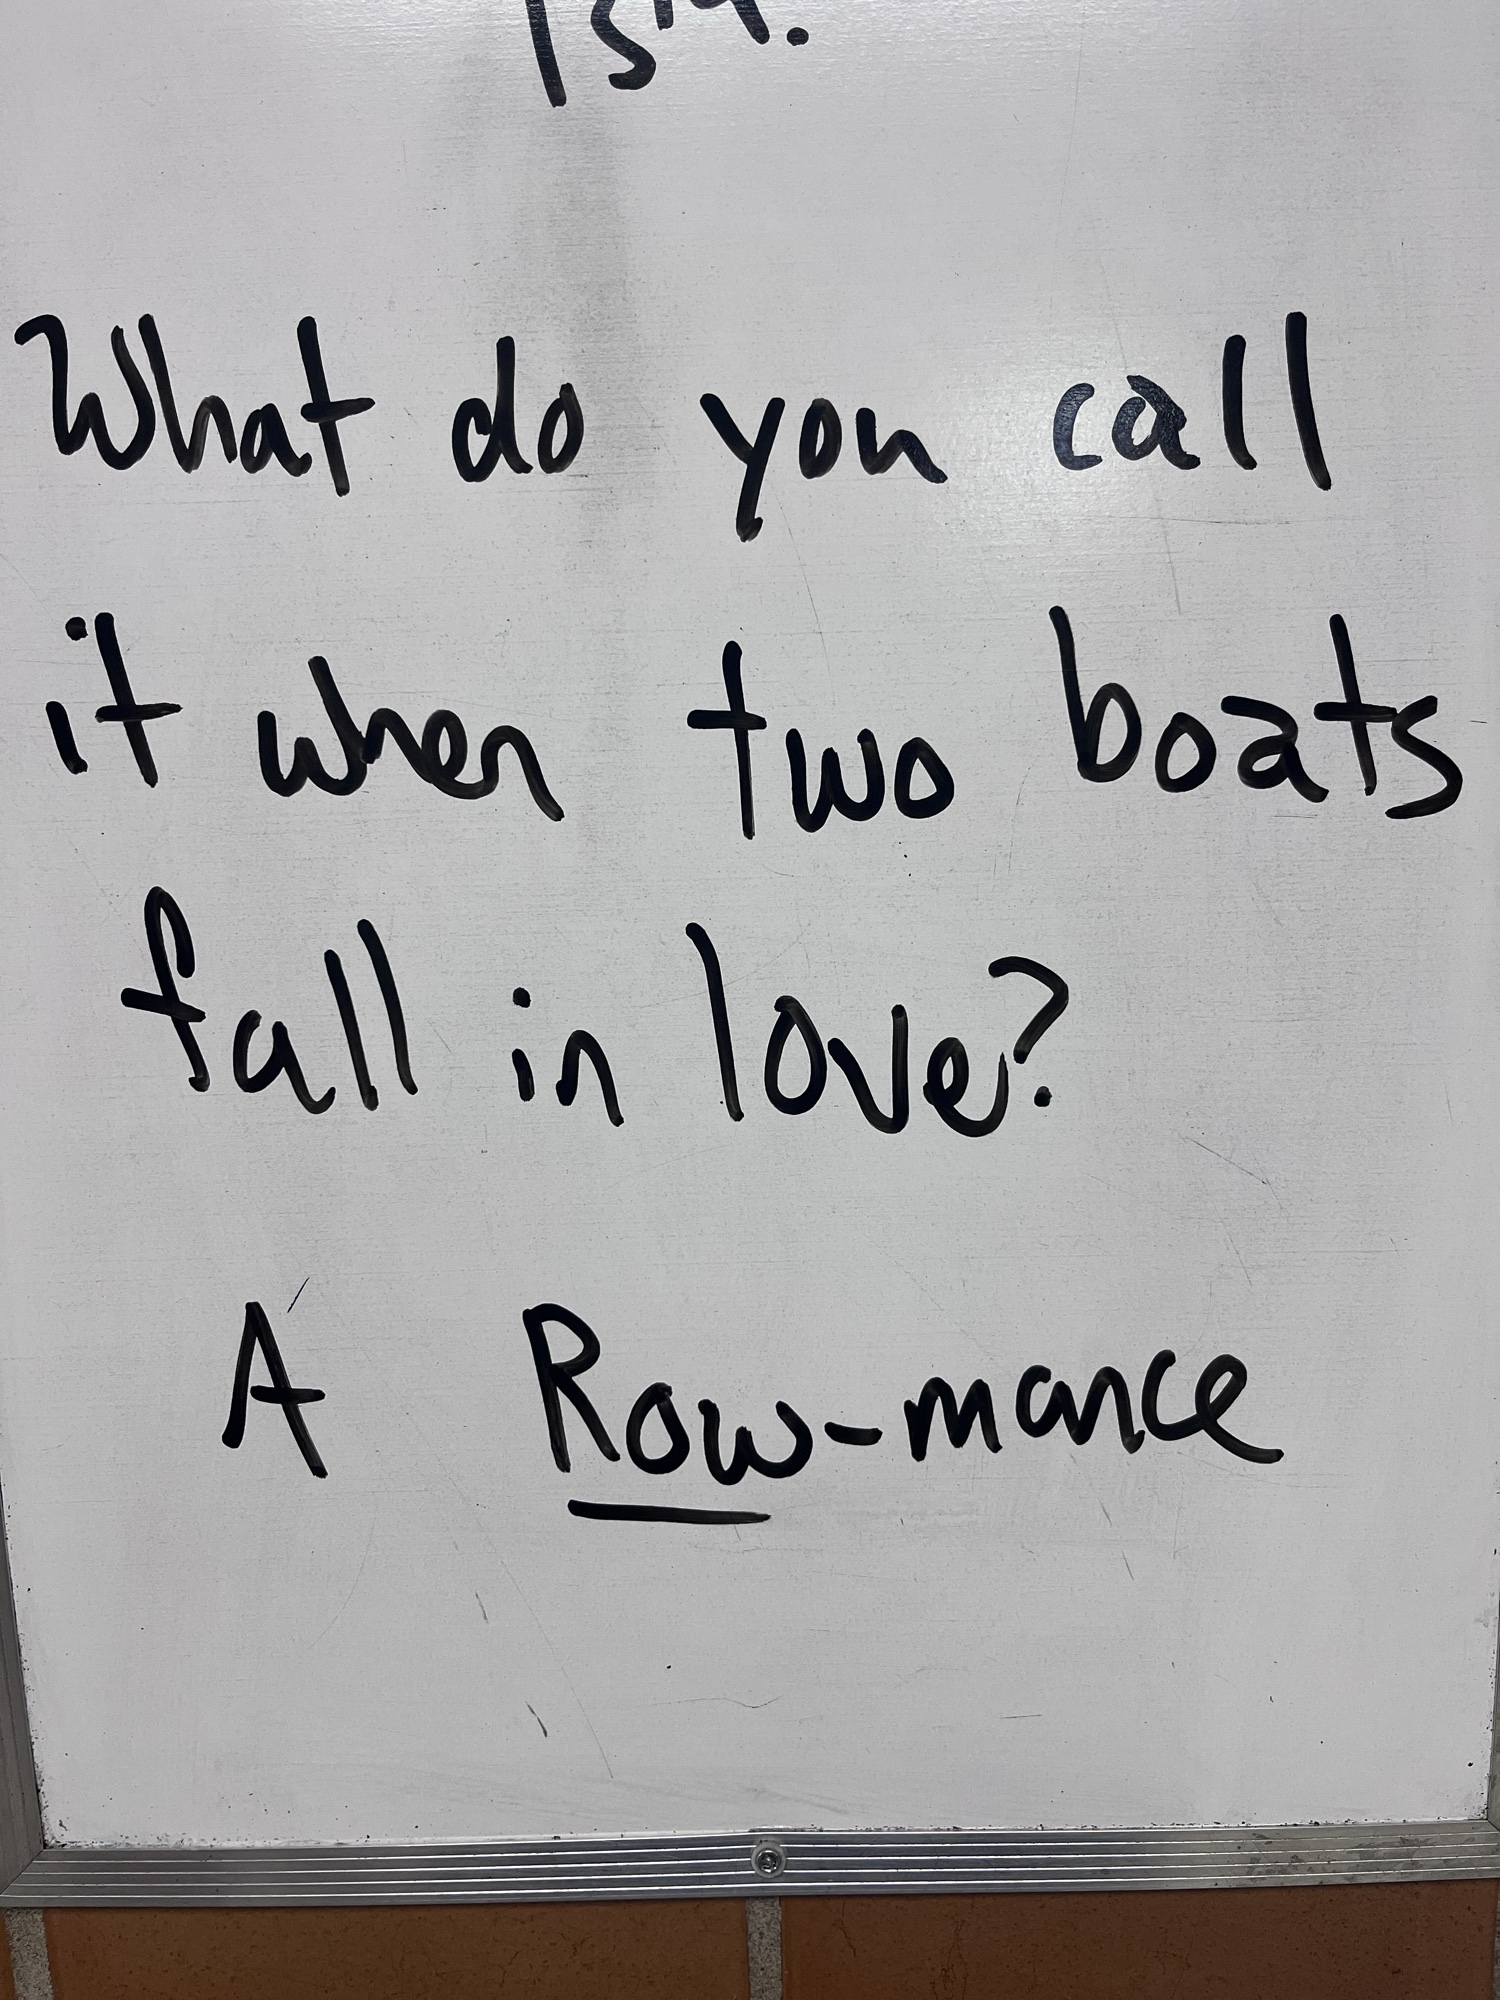 What do you call
it when two boats
fall in love?
A Row-mance